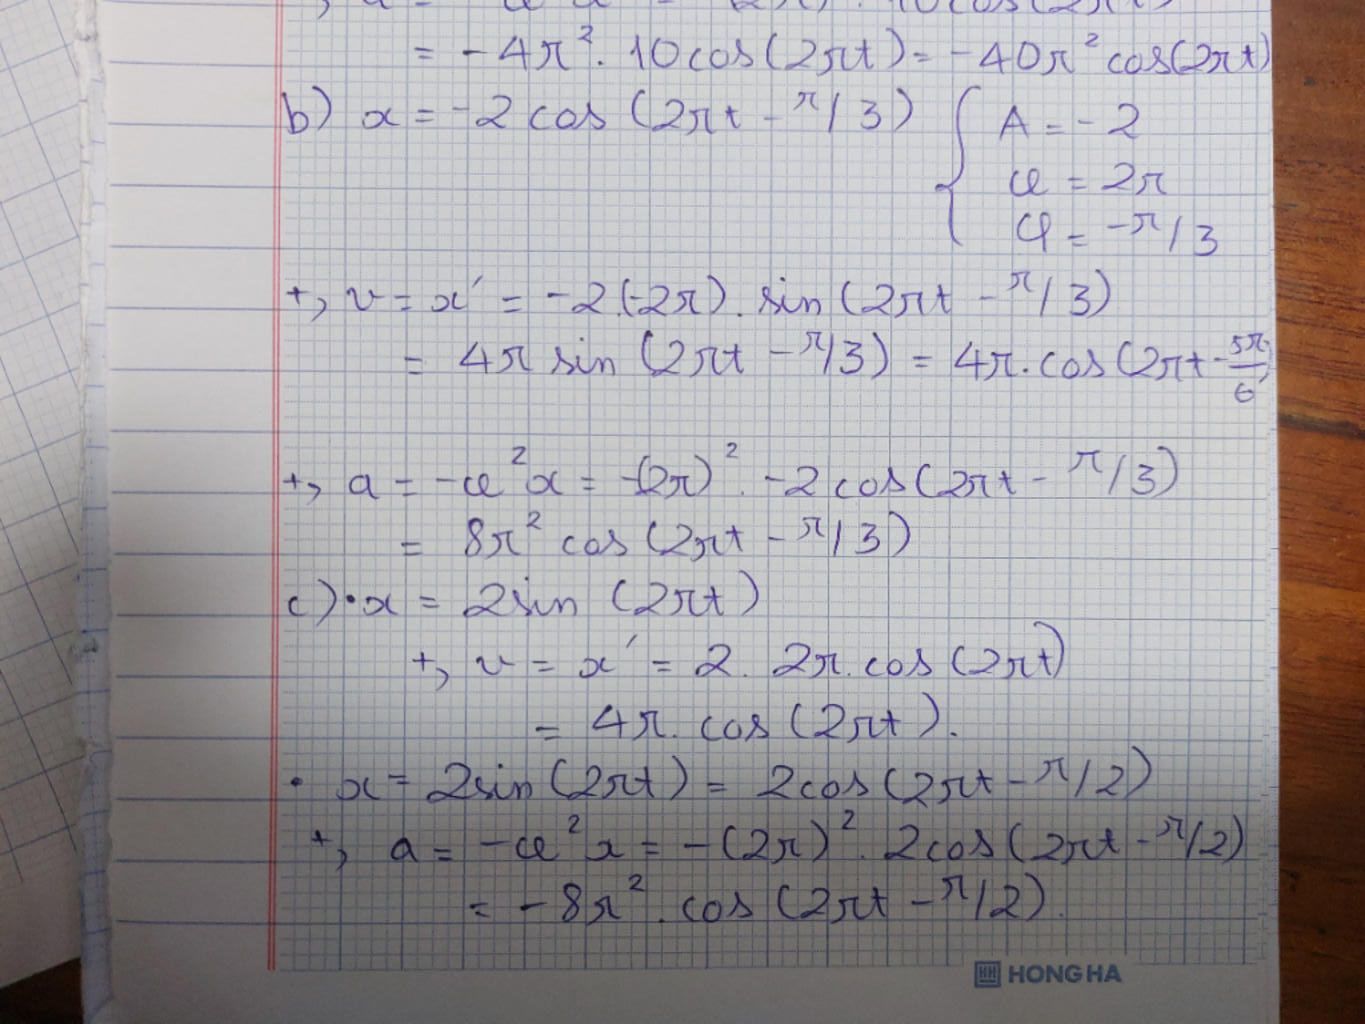 , a = -ω²x = -(2π)². 10cos(2πt)
= -4π². 10cos(2πt) = -40π² cos(2πt)
b) x = -2 cos (2πt - π/3) { A = -2
ω = 2π
φ = -π/3
+, v = x' = -2.(-2π). sin (2πt - π/3)
= 4π sin (2πt - π/3) = 4π. cos (2πt - 5π/6)
+, a = -ω²x = -(2π)². -2 cos (2πt - π/3)
= 8π² cos (2πt - π/3)
c) • x = 2sin (2πt)
+, v = x' = 2. 2π. cos (2πt)
= 4π. cos (2πt).
• x = 2sin (2πt) = 2cos (2πt - π/2)
+, a = -ω²x = -(2π)². 2cos (2πt - π/2)
= -8π². cos (2πt - π/2).
HONG HA